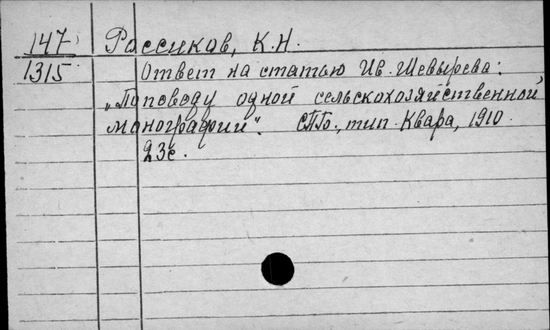 147 Россиков, К.Н.
1315 Ответ на статью Ив. Шевырева:
„По поводу одной сельскохозяйственной
монографии“. СПб., тип. Квара, 1910.
23с.